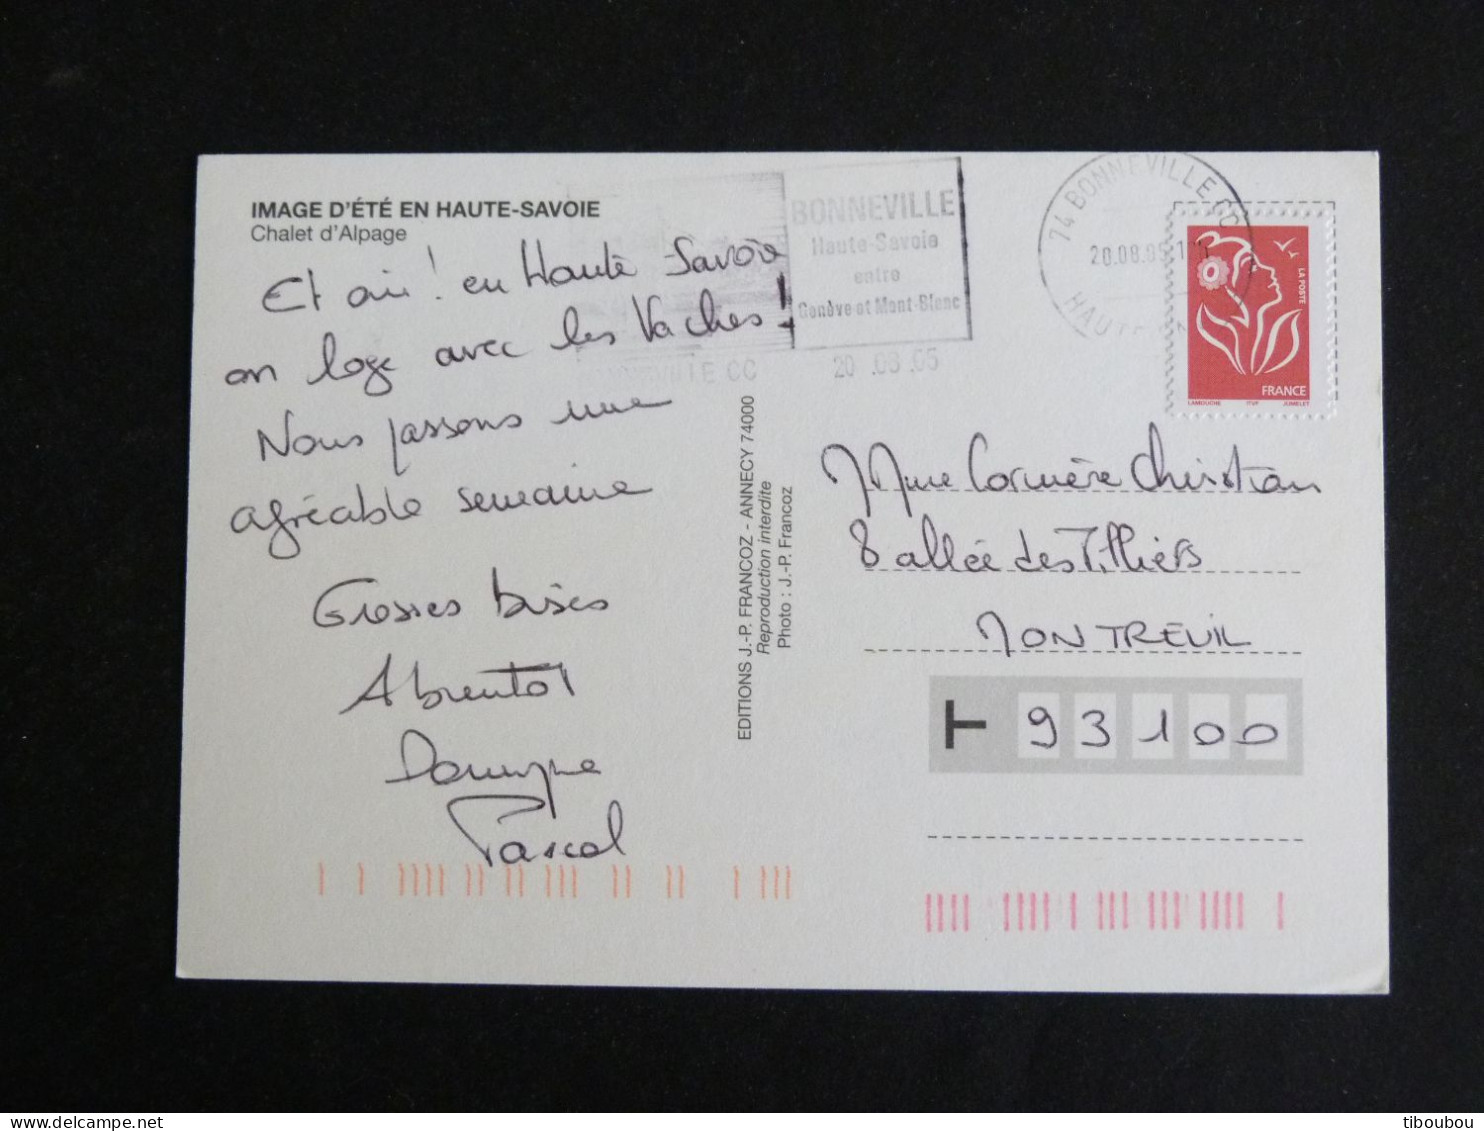 IMAGE D'ÉTÉ EN HAUTE-SAVOIE
Chalet d'Alpage
Et oui ! en Haute Savoie
on loge avec les Vaches !
Nous passons une
agréable semaine
Grosses bises
A bientôt
Pascal
EDITIONS J.-P. FRANCOZ - ANNECY 74000
Reproduction interdite
Photo : J.-P. Francoz
BONNEVILLE
Haute-Savoie
entre
Genève et Mont-Blanc
20 .08 .05
74 BONNEVILLE CC
20.08.05
LA POSTE
FRANCE
LAMOUCHE ITVF JUMELET
MMme Cormière Christian
8 allée des Tilliers
MONTREUIL
T 93100
tiboubou